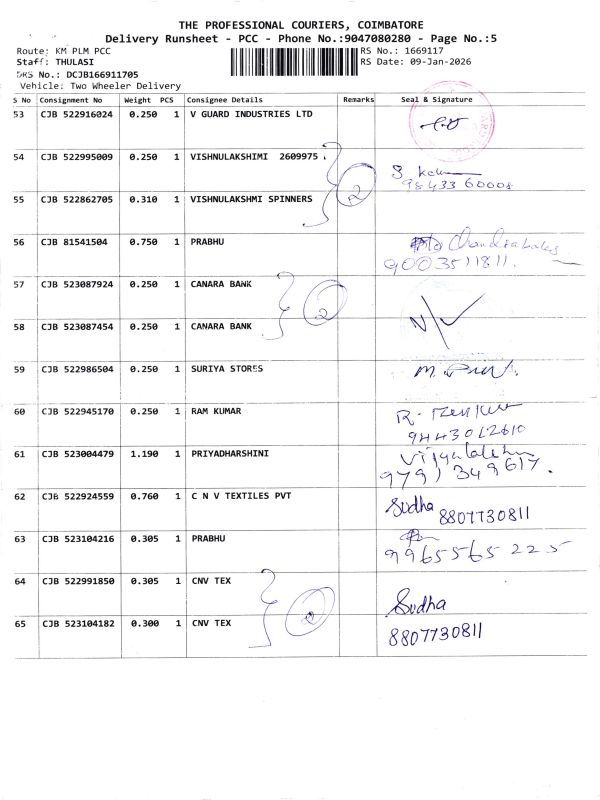 THE PROFESSIONAL COURIERS, COIMBATORE
Delivery Runsheet - PCC - Phone No.:9047080280 - Page No.:5
Route: KM PLM PCC RS No.: 1669117
Staff: THULASI RS Date: 09-Jan-2026
DRS No.: DCJB166911705
Vehicle: Two Wheeler Delivery
S No Consignment No Weight PCS Consignee Details Remarks Seal & Signature
53 CJB 522916024 0.250 1 V GUARD INDUSTRIES LTD
54 CJB 522995009 0.250 1 VISHNULAKSHIMI 2609975
98433 60008
2
55 CJB 522862705 0.310 1 VISHNULAKSHMI SPINNERS
56 CJB 81541504 0.750 1 PRABHU
9003511811.
57 CJB 523087924 0.250 1 CANARA BANK
2
58 CJB 523087454 0.250 1 CANARA BANK
59 CJB 522986504 0.250 1 SURIYA STORES
60 CJB 522945170 0.250 1 RAM KUMAR
9443012610
61 CJB 523004479 1.190 1 PRIYADHARSHINI
9791349617.
62 CJB 522924559 0.760 1 C N V TEXTILES PVT Sudha
8807730811
63 CJB 523104216 0.305 1 PRABHU
9965565225
64 CJB 522991850 0.305 1 CNV TEX
Sudha
65 CJB 523104182 0.300 1 CNV TEX
8807730811